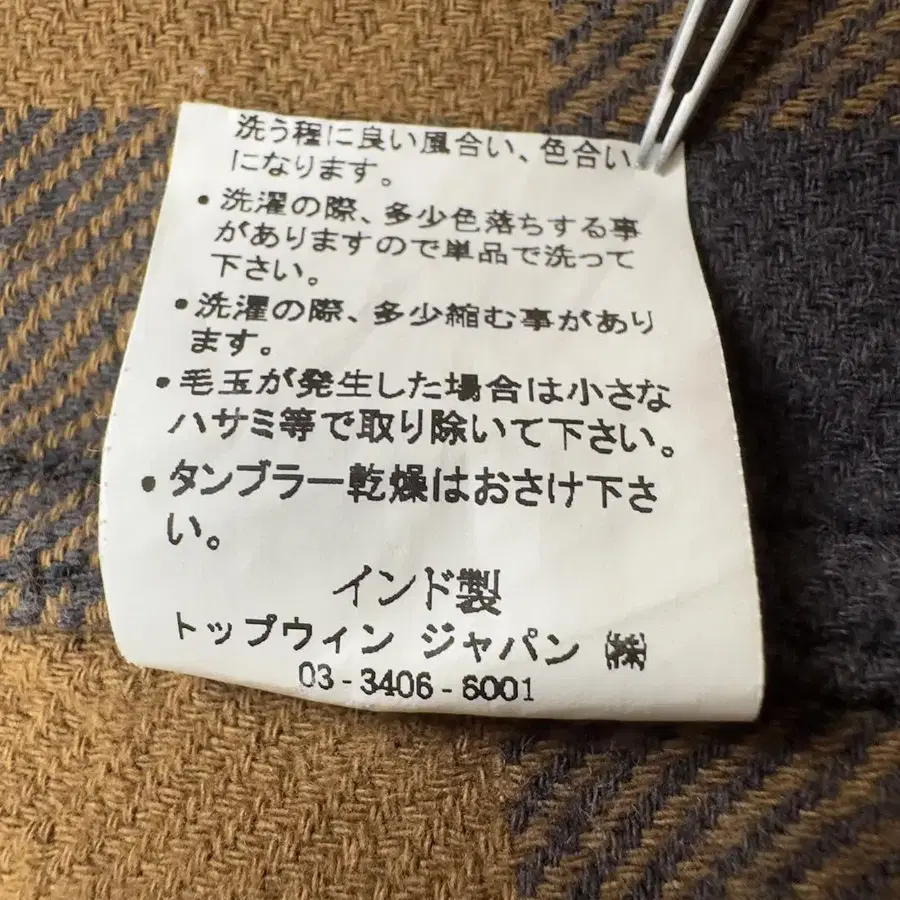 洗う程に良い風合い、色合い
になります。
・洗濯の際、多少色落ちする事
がありますので単品で洗って
下さい。
・洗濯の際、多少縮む事があり
ます。
・毛玉が発生した場合は小さな
ハサミ等で取り除いて下さい。
・タンブラー乾燥はおさけ下さ
い。
インド製
トップウイン ジャパン
03-3406-6001